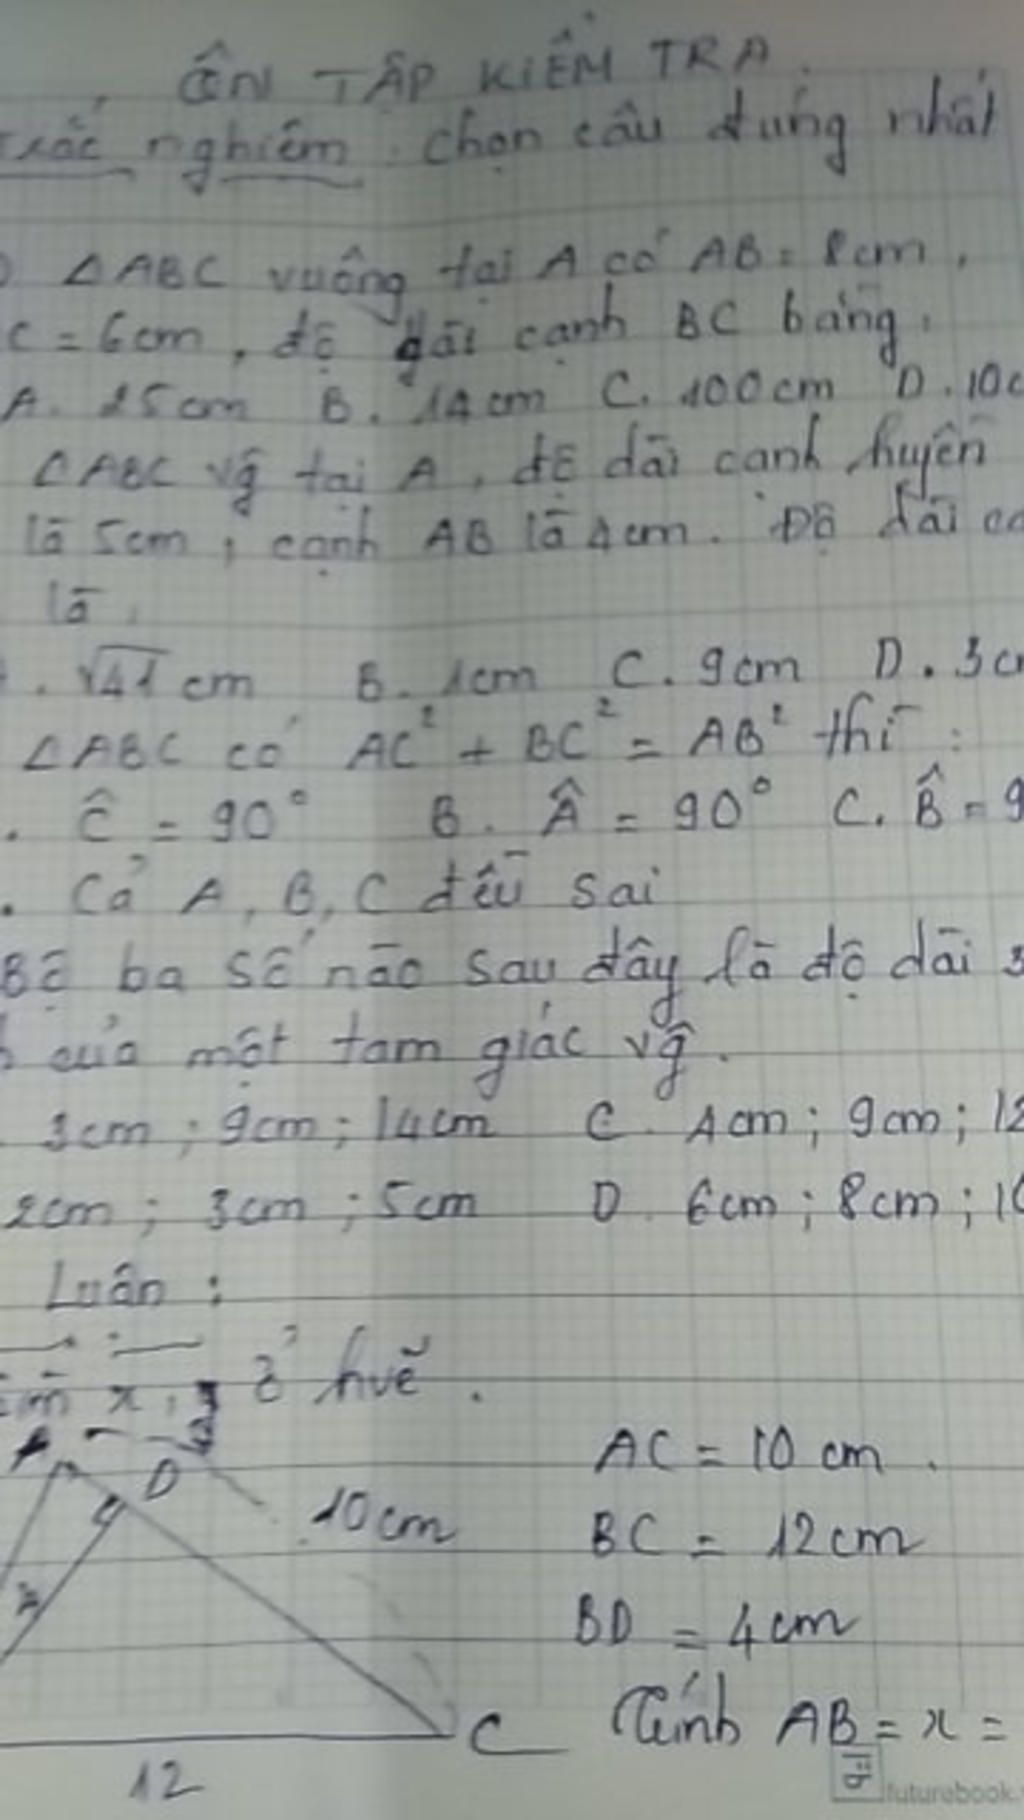 ÔN TẬP KIỂM TRA.
trắc nghiệm. chọn câu đúng nhất
ΔABC vuông tại A có AB = 8cm,
C = 6cm, độ dài cạnh BC bằng:
A. 25cm B. 14cm C. 100cm D. 10c
ΔABC vg̃ tại A, độ dài cạnh huyền
là 5cm, cạnh AB là 4cm. Độ dài cạ
là:
. √41 cm B. 1cm C. 9cm D. 3cm
ΔABC có AC² + BC² = AB² thì:
. Ĉ = 90° B. Â = 90° C. B̂ = 9
. Cả A, B, C đều sai
Bộ ba số nào sau đây là độ dài 3
của một tam giác vg̃.
3cm; 9cm; 14cm C. 4cm; 9cm; 12
2cm; 3cm; 5cm D. 6cm; 8cm; 10
Luận:
x, y ở hvẽ.
A D
10cm
AC = 10 cm.
BC = 12cm
BD = 4cm
C
Tính AB = x =
12
futurebook.